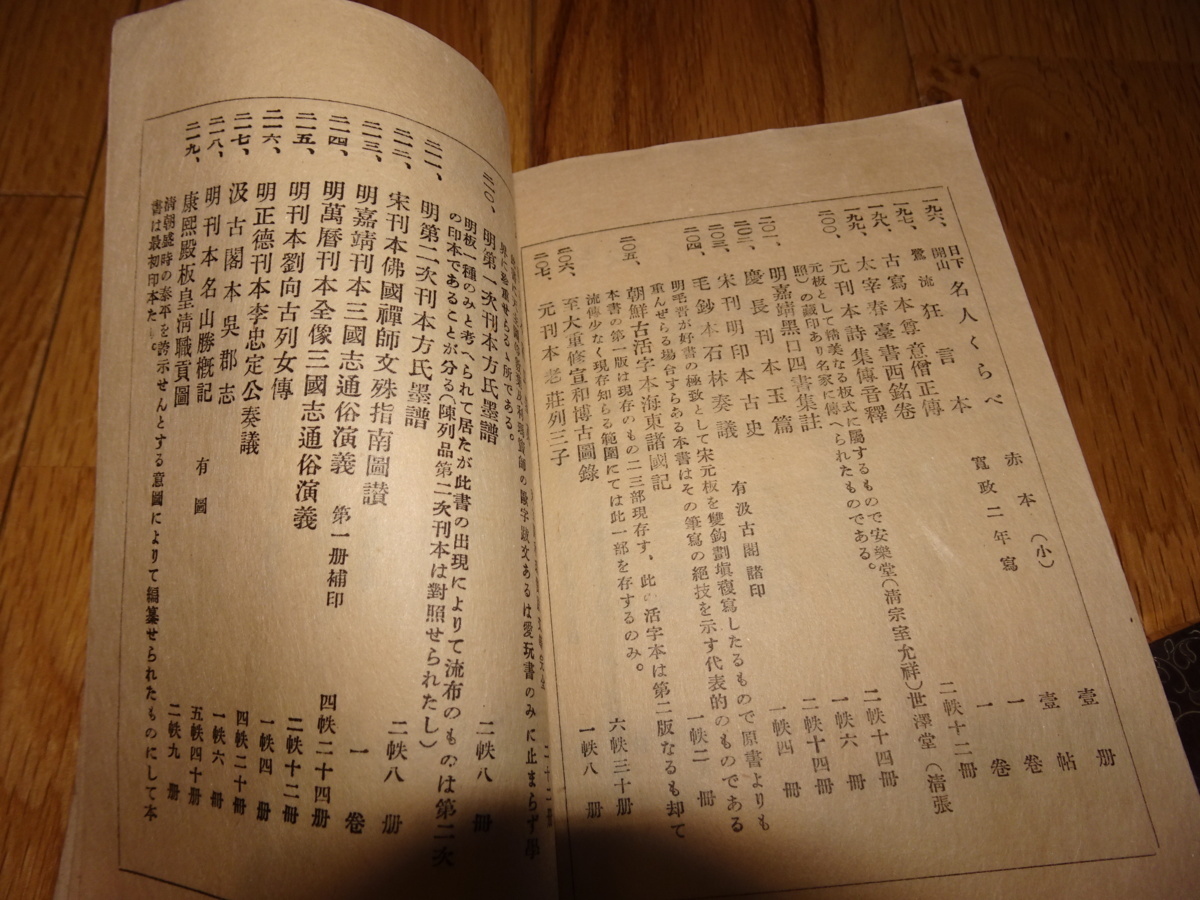 一九六、日下開山名人くらべ 赤本(小) 壹冊
一九七、鷺流狂言本 寬政二年寫 壹帖
一九八、古寫本尊意僧正傳 一卷
一九九、太宰春臺書西銘卷 一卷
二〇〇、元刊本詩集傳音釋 二帙十二冊
元板として精美なる板式に屬するもので安樂堂(清宗室允祥)世澤堂(清張
照)の藏印あり名家に傳へられたものである。
二〇一、明嘉靖黑口四書集註 二帙十四冊
二〇二、慶長刊本玉篇 一帙六冊
二〇三、宋刊明印本古史 有汲古閣諸印 二帙十四冊
二〇四、毛鈔本石林奏議 一帙四冊
明毛晋が好書の極致として宋元板を雙鈎劃塡複寫したるもので原書よりも
重んぜらる場合すらある本書はその筆寫の絕技を示す代表的のものである
二〇五、朝鮮古活字本海東諸國記 一帙二冊
本書の第一版は現存のもの二三部現存す、此の活字本は第二版なるも却て
流傳少なく現存知らる範圍にては此一部を存するのみ。
二〇六、至大重修宣和博古圖錄 六帙三十册
二〇七、元刊本老莊列三子 一帙八冊
の歐字跋文あるは愛玩書のみに止まらず學
る所である。
二一〇、明第一次刊本方氏墨譜 二帙八冊
明板一種のみと考へられて居たが此書の出現によりて流布のものは第二次
の印本であることが分る(陳列品第二次刊本は對照せられたし)
二一一、明第二次刊本方氏墨譜 二帙八冊
二一二、宋刊本佛國禪師文殊指南圖讚 一卷
二一三、明嘉靖刊本三國志通俗演義 第一册補印 四帙二十四冊
二一四、明萬曆刊本全像三國志通俗演義 二帙十二冊
二一五、明刊本劉向古列女傳 一帙四冊
二一六、明正德刊本李忠定公奏議 四帙二十冊
二一七、汲古閣本吳郡志 一帙六冊
二一八、明刊本名山勝槪記 有圖 五帙四十冊
二一九、康熙殿板皇清職貢圖 二帙九冊
清朝盛時の泰平を誇示せんとする意圖によりて編纂せられたものにして本
書は最初印本た